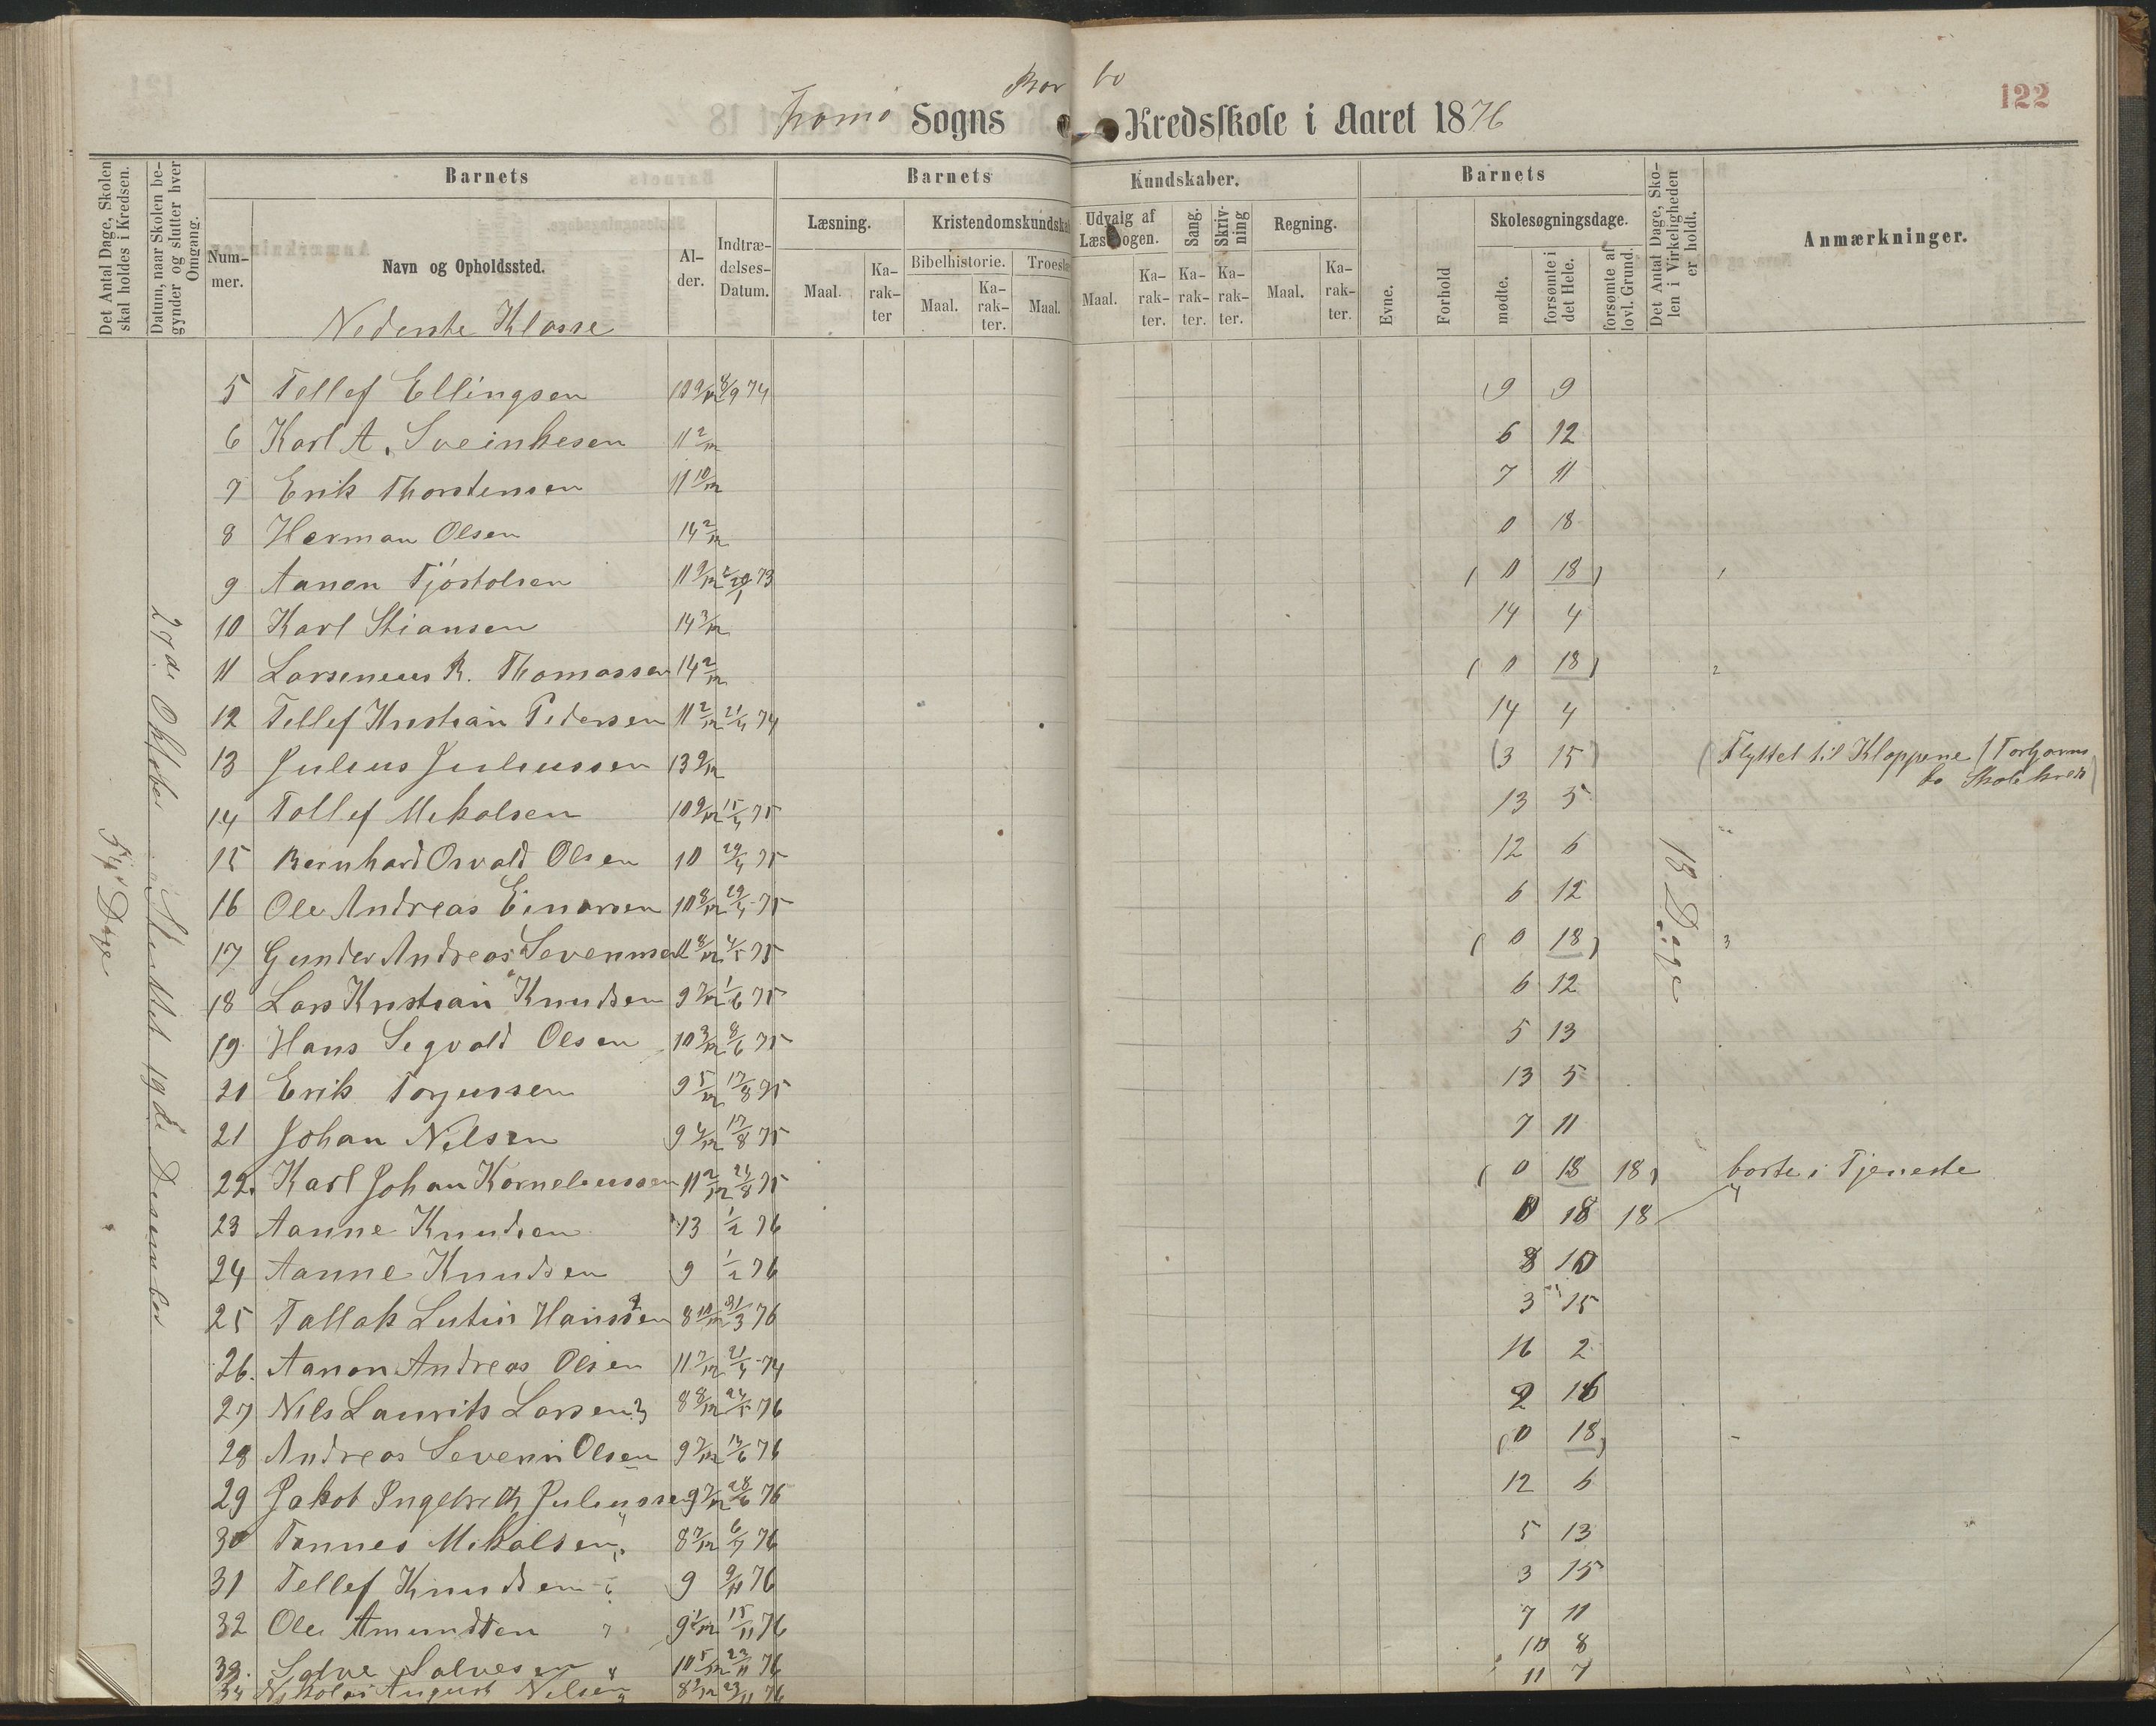 122
Tromö Sogns Bor bo Kredsskole i Aaret 1876
Det Antal Dage, Skolen skal holdes i Kredsen.
Datum, naar Skolen begynder og slutter hver Omgang.
Barnets
Barnets Kundskaber.
Barnets
Nummer.
Navn og Opholdssted.
Alder.
Indtrædelses-Datum.
Læsning.
Maal.
Karakter
Kristendomskundskab
Bibelhistorie.
Maal.
Karakter.
Troes
Maal.
Udvalg af Læsebogen.
Maal.
Karakter.
Sang.
Karakter.
Skrivning
Karakter.
Regning.
Maal.
Karakter.
Evne.
Forhold
Skolesøgningsdage.
mødte.
forsømte i det Hele.
forsømte af lovl. Grund.
Det Antal Dage, Skolen i Virkeligheden er holdt.
Anmærkninger.
Nederste Klasse
27de Oktober Sluttet 19de Desember
Dage
18 Dage
5 Tellef Ellingsen 10 9/12 8/9 74 9 9
6 Karl A. Sveinkesen 11 2/12 6 12
7 Erik Thorstensen 11 10/12 7 11
8 Herman Olsen 14 2/12 0 18
9 Aanon Tjöstolsen 11 9/12 73 (0 18) 1
10 Karl Stiansen 14 3/12 14 4
11 Larseneus R. Thomassen 14 2/12 (0 18) 2
12 Tellef Kristian Pedersen 11 2/12 21/4 74 14 4
13 Julius Juliussen 13 9/12 (3 15) (Flyttet til Kloppene (Torbjørns
bo Skolekreds)
14 Tollef Mikalsen 10 9/12 15/4 75 13 5
15 Bernhard Osvald Olsen 10 29/4 75 12 6
16 Ole Andreas Einarsen 10 8/12 29/4 75 6 12
17 Gunder Andreas Sevennsen 11 8/12 4/5 75 (0 18) 3
18 Lars Kristian Knudsen 9 7/12 1/6 75 6 12
19 Hans Segvald Olsen 10 3/12 8/6 75 5 13
20 Erik Torjussen 9 5/12 17/8 75 13 5
21 Johan Nilsen 9 4/12 17/8 75 7 11
22. Karl Johan Korneliussen 11 2/12 24/8 75 (0 18 18) borte i Tjeneste
23 Aanne Knudsen 13 1/2 76 0 18 18 4
24 Aanne Knudsen 9 1/2 76 8 10
25 Tallak Lutin Hanssen 8 10/12 31/3 76 3 15
26. Aanon Andreas Olsen 11 7/12 21/4 74 16 2
27 Nils Laurits Larsen 3 8 8/12 24/5 76 2 16
28 Andreas Severin Olsen 9 7/12 76 (0 18)
29 Jakob Ingebreth Juliussen 9 7/12 28/6 76 12 6
30 Tønnes Mikalsen 8 7/12 6/7 76 5 13
31 Tellef Knudsen 9 9/11 76 3 15
32 Ole Amundsen 7 9 1/12 15/11 76 7 11
33. Salve Salvesen 8 10 5/12 23/11 76 10 8
34 Nikolai August Nilsen 9 8 2/12 23/11 76 11 7